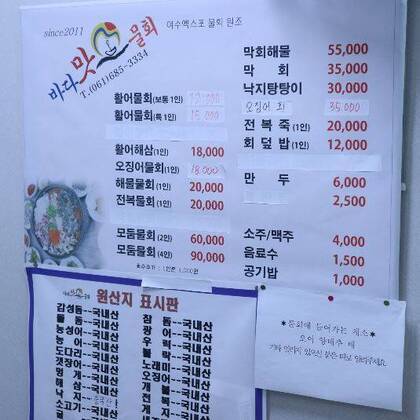 since2011
여수엑스포 물회 원조
바다 맛 물회
T.(061)685-3334
활어물회(보통 1인)
활어물회(특 1인) 15,000
활어해삼(1인) 18,000
오징어물회(1인) 18,000
해물물회(1인) 20,000
전복물회(1인) 20,000
모둠물회(2인) 60,000
모둠물회(4인) 90,000
막회해물 55,000
막 회 35,000
낙지탕탕이 30,000
오징어 회 35,000
전 복 죽(1인) 20,000
회 덮 밥(1인) 12,000
만 두 6,000
2,500
소주/맥주 4,000
음료수 1,500
공기밥 1,000
원산지 표시판
감성돔--국내산
돌 돔--국내산
농성어--국내산
농 어--국내산
도다리--국내산
갯장어--국내산
멍 게--국내산
해 삼--국내산
낙 지--
소고기--국내산
참 돔--국내산
광 어--국내산
우 럭--국내산
볼 락--국내산
노래미--국내산
오징어--국내산
개 불--국내산
전 복--국내산
*물회에 들어가는 채소*
오이 양배추 배